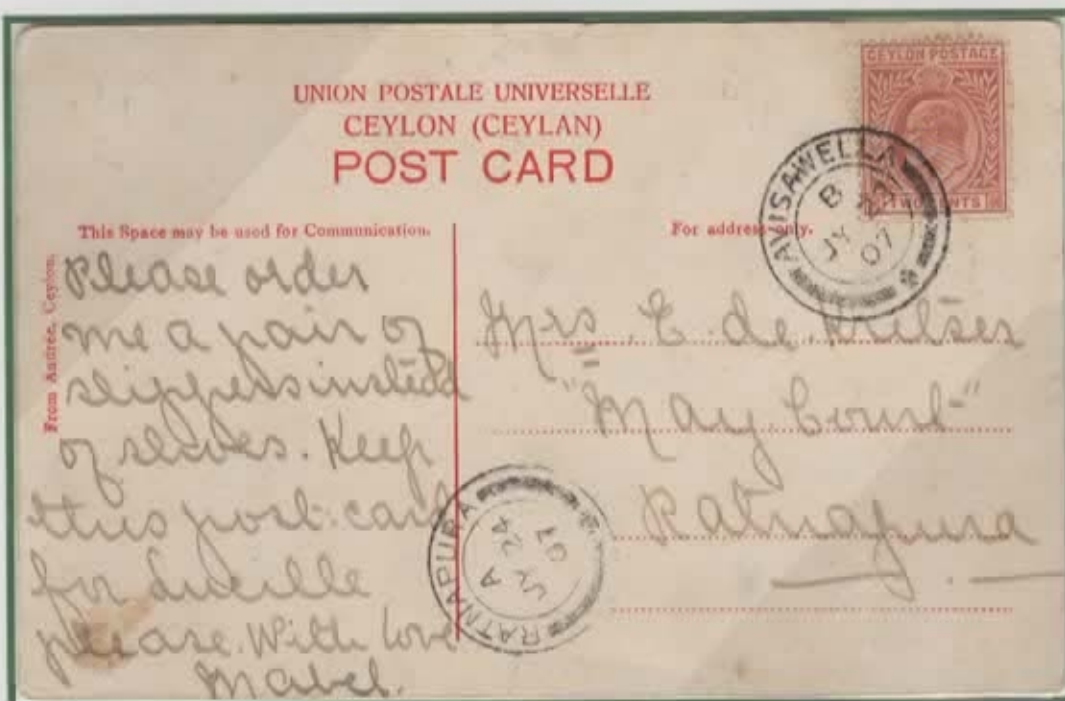 CEYLON POSTAGE
TWO CENTS
UNION POSTALE UNIVERSELLE
CEYLON (CEYLAN)
POST CARD
AVISAWELLA
B
JY
07
This Space may be used for Communication.
For address only.
From Andree, Ceylon.
Please order
me a pair of
slippers instead
of shoes. Keep
this post card
for Lucille
please. With love
Mabel.
Mrs. E. de Kretser
"May Court"
Ratnapura
RATNAPURA
A
JY 24
07